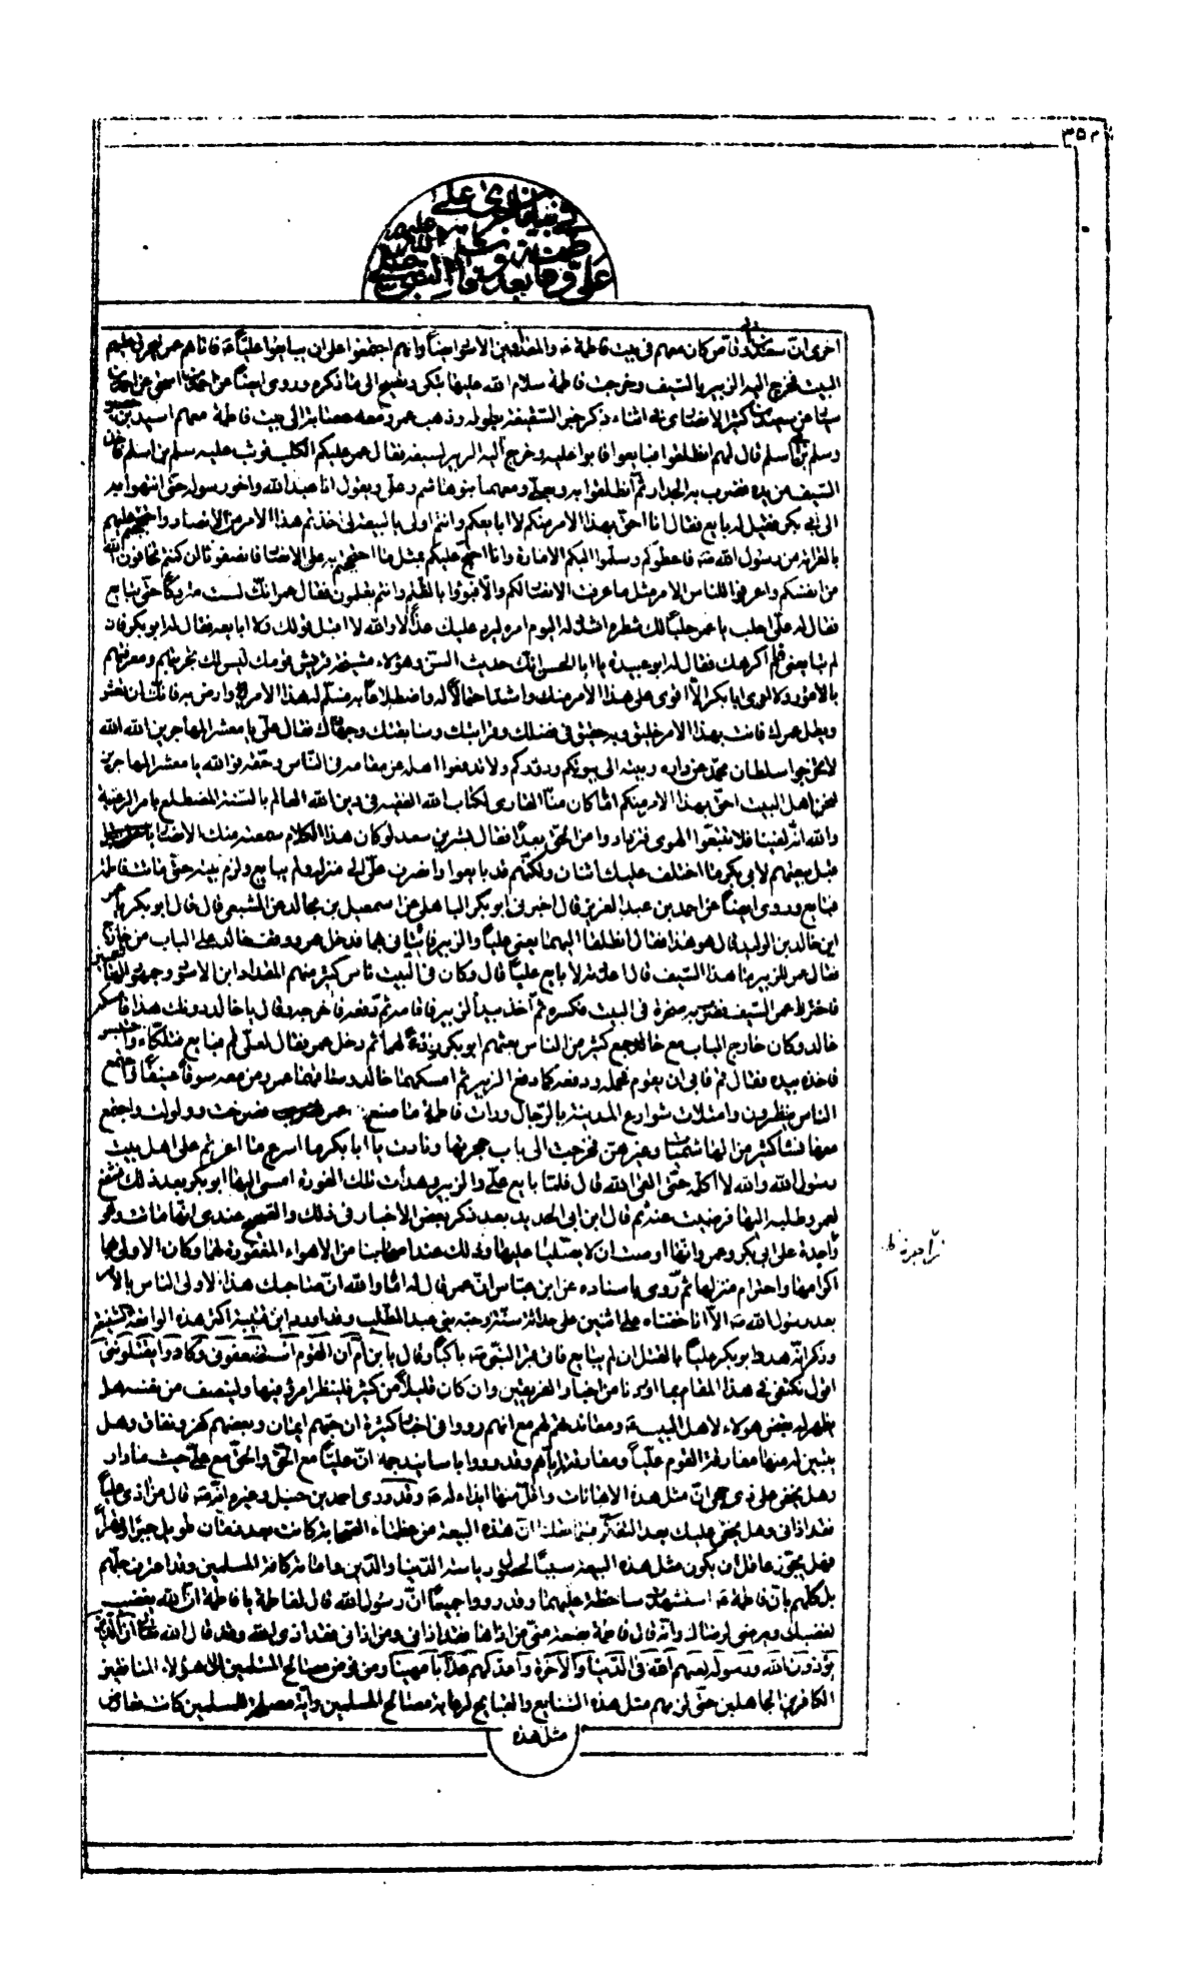 ٣٥٢
في بيان ما جرى على
على
بعد وفات النبي
اخرى انّ سعد بن ابى وقاص كان معهم فى بيت فاطمة ع والمقداد بن الاسود ايضاً وانهم اجتمعوا على ان يبايعوا عليّاً ع فاتاهم عمر ليحرق عليهم
البيت فخرج اليه الزبير بالسّيف وخرجت فاطمة سلام الله عليها تبكى وتصيح الى ما ذكره وروى ايضاً عن احمد بن اسحق عن احمد بن
سيّار عن سعيد بن كثير الانصارى فى اثناء ذكر خبر السّقيفة بطوله وذهب عمر ومعه عصابة الى بيت فاطمة معهم اسيد بن حضير
وسلمة بن اسلم قال لهم انطلقوا فبايعوا فابوا عليه وخرج اليه الزبير بسيفه فقال عمر عليكم الكلب فوثب عليه سلمة بن اسلم فاخذ
السّيف من يده فضرب به الجدار ثمّ انطلقوا به وبعلىّ ومعهما بنو هاشم وعلىّ ويقول انا عبد الله واخو رسوله حتّى انتهوا به
الى ابى بكر فقيل له بايع فقال انا احقّ بهذا الامر منكم لا ابايعكم وانتم اولى بالبيعة لى اخذتم هذا الامر من الانصار واحتججتم عليهم
بالقرابة من رسول الله ص فاعطوكم وسلّموا اليكم الامارة وانا احتجّ عليكم بمثل ما احتججتم به على الانصار فانصفونا ان كنتم تخافون الله
من انفسكم واعرفوا للناس الامر مثل ما عرفت الانصار لكم والّا فبوؤا بالظّلم وانتم تعلمون فقال عمر انّك لست متروكاً حتّى تبايع
فقال له علىّ احلب يا عمر حلباً لك شطره اشدد له اليوم امره ليرد عليك غداً لا والله لا اقبل قولك ولا ابايعه فقال له ابو بكر فان
لم تبايعنى فلم اكرهك فقال له ابو عبيدة يا ابا الحسن انّك حديث السّن وهؤلاء مشيخة قريش قومك ليس لك تجربتهم ومعرفتهم
بالامور ولا ارى ابا بكر الّا اقوى على هذا الامر منك واشدّ احتمالاً له واضطلاعاً به فسلّم له هذا الامر وارض به فانّك ان تعش
ويطل عمرك فانت بهذا الامر خليق وبه حقيق فى فضلك وقرابتك وسابقتك وجهادك فقال علىّ يا معشر المهاجرين الله الله
لا تخرجوا سلطان محمّد عن داره وبيته الى بيوتكم ودوركم ولا تدفعوا اهله عن مقامه فى النّاس وحقّه فوالله يا معشر المهاجرين
لنحن اهل البيت احقّ بهذا الامر منكم اما كان منّا القارى لكتاب الله الفقيه فى دين الله العالم بالسّنة المضطلع بامر الرعيّة
والله انّه لفينا فلا تتّبعوا الهوى فتزدادوا من الحقّ بعداً فقال بشير بن سعد لو كان هذا الكلام سمعته منك الانصار يا علىّ
قبل بيعتهم لابى بكر ما اختلف عليك اثنان ولكنّهم قد بايعوا وانصرف علىّ الى منزله ولم يبايع ولزم بيته حتّى ماتت فاطمة
فبايع وروى ايضاً عن احمد بن عبد العزيز قال اخبرنى ابو بكر الباهلى عن اسمعيل بن مجالد عن الشعبى قال قال ابو بكر يا عمر
اين خالد بن الوليد قال هو هذا فقال انطلقا اليهما يعنى عليّاً والزبير فاتيانى بهما فدخل عمر ووقف خالد على الباب من خارج
فقال عمر للزبير ما هذا السّيف قال اعددته لابايع عليّاً قال وكان فى البيت ناس كثير منهم المقداد ابن الاسود وجمهور الهاشميين
فاخترط عمر السّيف فضرب به صخرة فى البيت فكسره ثمّ اخذ بيد الزبير فاقامه ثم دفعه فاخرجه وقال يا خالد دونك هذا فامسكه
خالد وكان خارج الباب مع خالد جمع كثير من الناس بعثهم ابو بكر ردءاً لهما ثم دخل عمر فقال لعلىّ قم فبايع فتلكّأ واحتبس
فاخذه بيده فقال قم فابى ان يقوم فحمله ودفعه كما دفع الزبير ثم امسكهما خالد وساقهما عمر ومن معه سوقاً عنيفاً واجتمع
الناس ينظرون وامتلات شوارع المدينة بالرّجال ورات فاطمة ما صنع عمر فصرخت وولولت واجتمع
معها نساء كثير من الهاشميّات وغيرهنّ فخرجت الى باب حجرتها ونادت يا ابا بكر ما اسرع ما اغرتم على اهل بيت
رسول الله والله لا اكلّم عمر حتّى القى الله قال فلمّا بايع علىّ والزبير وهدأت تلك الفورة امشى اليها ابو بكر بعد ذلك فشفع
لعمر وطلب اليها فرضيت عنه ثم قال ابن ابى الحديد بعد ذكر بعض الاخبار فى ذلك والصّحيح عندى انّها ماتت وهى
واجدة على ابى بكر وعمر وانّها اوصت ان لا يصلّيا عليها وذلك عند اصحابنا من الامور المغفورة لهما وكان الاولى بهما
اكرامها واحترام منزلها ثم روى باسناده عن ابن عبّاس انّ عمر قال له اما والله انّ صاحبك هذا لاولى الناس بالامر
بعد رسول الله ص الّا انا خفناه على اثنتين على حداثة سنّه وحبّه بنى عبد المطّلب وقد اورد ابن قتيبة اكثر هذه الواقعة
وذكر انّه هدد ابو بكر عليّاً بالقتل ان لم يبايع فاتى قبر النبىّ ص باكياً وقال يا بن امّ انّ القوم استضعفونى وكادوا يقتلوننى
اقول نكتفى فى هذا المقام بما اوردنا من اخبار الفريقين وان كان قليلاً من كثير فلينظر امرؤ فيها ولينصف من نفسه هل
يظهر له بغض هؤلاء لاهل البيت ومعاندتهم لهم مع انهم رووا فى اخبار كثيرة ان حبّهم ايمان وبغضهم كفر ونفاق وهل
يتبيّن له منها مفارقة القوم عليّاً ومفارقته ايّاهم وقد رووا باسانيد جمّة انّ عليّاً مع الحقّ والحقّ مع علىّ حيث ما دار
وهل يخفى على ذى حجى انّ مثل هذه الاهانات واقلّ منها ايذاء له ع وقد روى احمد بن حنبل وغيره انّه ص قال من اذى عليّاً
فقد اذانى وهل يخفى عليك بعد التفكّر فيما نقلنا انّ هذه البيعة من عظماء الصّحابة كانت بعد زمان طويل جبراً وقهراً
فهل يجوّز عاقل ان يكون مثل هذه البيعة سبباً لحصول رياسة الدّنيا والدّين وامامة كافّة المسلمين وقد اعترف جلّهم
بل كلهم بانّ فاطمة ع استشهدت ساخطة عليهما وقد رووا جميعاً انّ رسول الله قال لفاطمة يا فاطمة انّ الله يغضب
لغضبك ويرضى لرضاك وانّه قال فاطمة بضعة منّى من اذاها فقد اذانى ومن اذانى فقد اذى الله وقد قال الله تعالى انّ الّذين
يؤذون الله ورسوله لعنهم الله فى الدّنيا والآخرة واعدّ لهم عذاباً مهيناً ومن فوّض مصالح المسلمين الى هؤلاء المنافقين
الكافرين الجاهلين حتّى لزمهم مثل هذه الشنايع والقبايح لرعاية مصالح المسلمين واية مصلحة للمسلمين كانت تعارض
مثل هذه